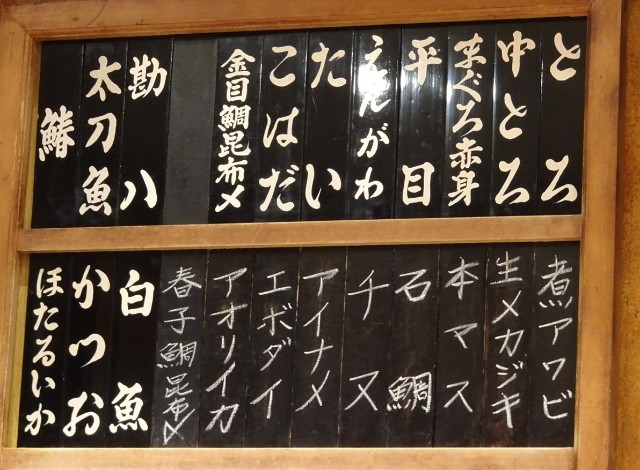 とろ
中とろ
まぐろ赤身
平目
えんがわ
たい
こはだ
金目鯛昆布〆
勘八
太刀魚
鰆
煮アワビ
生メカジキ
本マス
石鯛
チヌ
アイナメ
エボダイ
アオリイカ
春子鯛昆布〆
白魚
かつお
ほたるいか